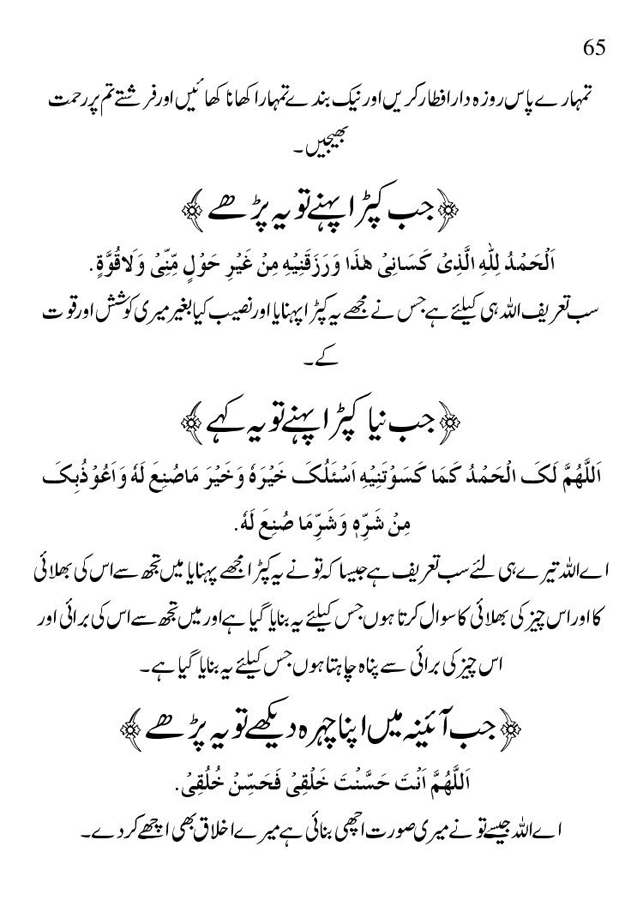 65
تمہارے پاس روزہ دار افطار کریں اور نیک بندے تمہارا کھانا کھائیں اور فرشتے تم پر رحمت
بھیجیں۔
﴿جب کپڑا پہنے تو یہ پڑھے﴾
اَلْحَمْدُ لِلّٰهِ الَّذِیْ کَسَانِیْ هٰذَا وَرَزَقَنِیْهِ مِنْ غَیْرِ حَوْلٍ مِّنِّیْ وَلَا قُوَّةٍ.
سب تعریف اللہ ہی کیلئے ہے جس نے مجھے یہ کپڑا پہنایا اور نصیب کیا بغیر میری کوشش اور قوت
کے۔
﴿جب نیا کپڑا پہنے تو یہ کہے﴾
اَللّٰهُمَّ لَکَ الْحَمْدُ کَمَا کَسَوْتَنِیْهِ اَسْئَلُکَ خَیْرَهٗ وَخَیْرَ مَاصُنِعَ لَهٗ وَاَعُوْذُبِکَ
مِنْ شَرِّهٖ وَشَرِّمَا صُنِعَ لَهٗ.
اے اللہ تیرے ہی لئے سب تعریف ہے جیسا کہ تو نے یہ کپڑا مجھے پہنایا میں تجھ سے اس کی بھلائی
کا اور اس چیز کی بھلائی کا سوال کرتا ہوں جس کیلئے یہ بنایا گیا ہے اور میں تجھ سے اس کی برائی اور
اس چیز کی برائی سے پناہ چاہتا ہوں جس کیلئے یہ بنایا گیا ہے۔
﴿جب آئینہ میں اپنا چہرہ دیکھے تو یہ پڑھے﴾
اَللّٰهُمَّ اَنْتَ حَسَّنْتَ خَلْقِیْ فَحَسِّنْ خُلُقِیْ.
اے اللہ جیسے تو نے میری صورت اچھی بنائی ہے میرے اخلاق بھی اچھے کر دے۔